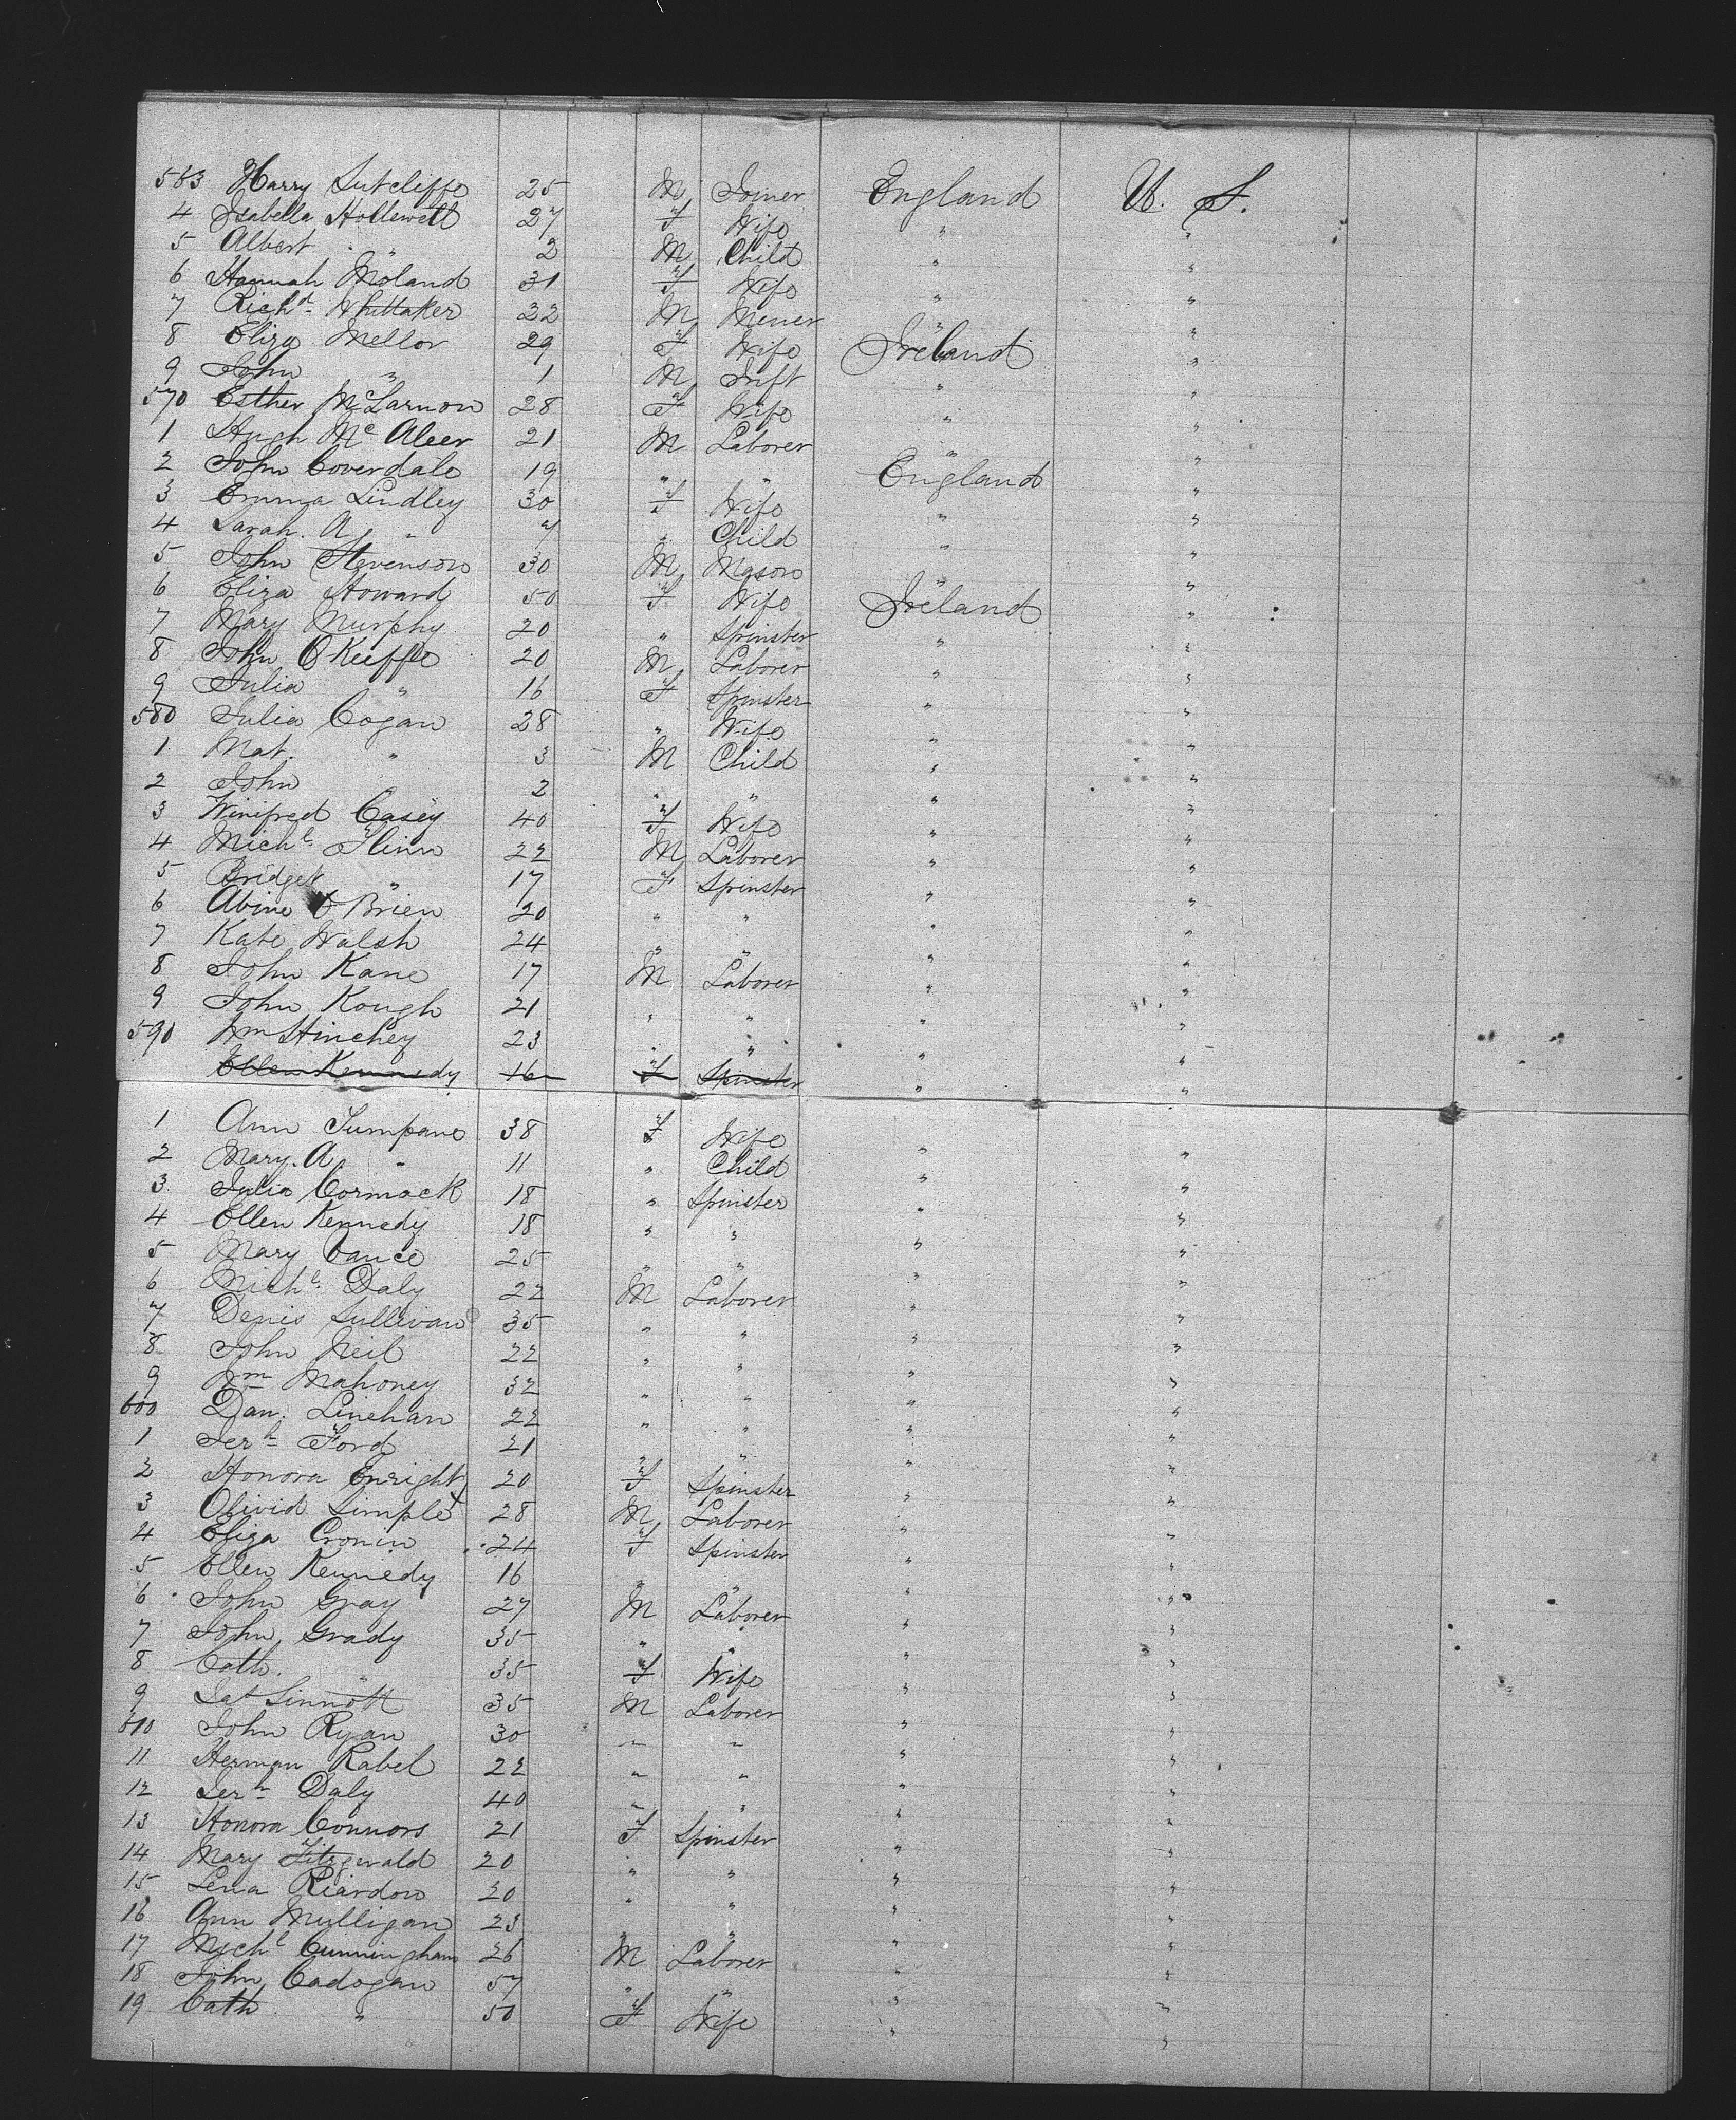 563 Harry Sutcliffe 25 M Joiner England U. S.
4 Isabella Hollewell 27 F Wife " "
5 Albert " 2 M Child " "
6 Hannah Moland 31 F Wife " "
7 Richd Whittaker 22 M Miner " "
8 Eliza Mellor 29 F Wife Ireland "
9 John " 1 M Inft " "
570 Esther McLarnon 28 F Wife " "
1 Hugh Mc Aleer 21 M Laborer " "
2 John Coverdale 19 " " England "
3 Emma Lindley 30 F Wife " "
4 Sarah. A " 7 " Child " "
5 John Stevenson 30 M Mason " "
6 Eliza Howard 50 F Wife Ireland "
7 Mary Murphy 20 " Spinster " "
8 John O Keiffe 20 M Laborer " "
9 Julia " 16 F Spinster " "
580 Julia Cogan 28 " Wife " "
1 Mat. " 3 M Child " "
2 John " 2 " " " "
3 Winifred Casey 40 F Wife " "
4 Michl Flinn 22 M Laborer " "
5 Bridget " 17 F Spinster " "
6 Abine O Brien 20 " " " "
7 Kate Walsh 24 " " " "
8 John Kane 17 M Laborer " "
9 John Kough 21 " " " "
590 Wm Hinchey 23 " " " "
Ellen Kennedy 16 F Spinster " "
1 Ann Tumpane 38 F Wife " "
2 Mary. A " 11 " Child " "
3 Julia Cormack 18 " Spinster " "
4 Ellen Kennedy 18 " " " "
5 Mary Vance 25 " " " "
6 Michl Daly 22 M Laborer " "
7 Denis Sullivan 35 " " " "
8 John Neil 22 " " " "
9 Wm Mahoney 32 " " " "
600 Dan. Linehan 22 " " " "
1 Jerh Ford 21 " " " "
2 Honora Enright 20 F Spinster " "
3 Simple 28 M Laborer " "
4 Eliza Cronin 24 F Spinster " "
5 Ellen Kennedy 16 " " " "
6 John Gray 27 M Laborer " "
7 John Grady 35 " " " "
8 Cath. " 35 F Wife " "
9 Pat Sinnott 35 M Laborer " "
610 John Ryan 30 " " " "
11 Herman Rabel 22 " " " "
12 Jerh Daly 40 " " " "
13 Honora Connors 21 F Spinster " "
14 Mary Fitzgerald 20 " " " "
15 Lena Riardon 20 " " " "
16 Ann Mulligan 23 " " " "
17 Michl Cunningham 26 M Laborer " "
18 John Cadogan 57 " " " "
19 Cath " 50 F Wife " "